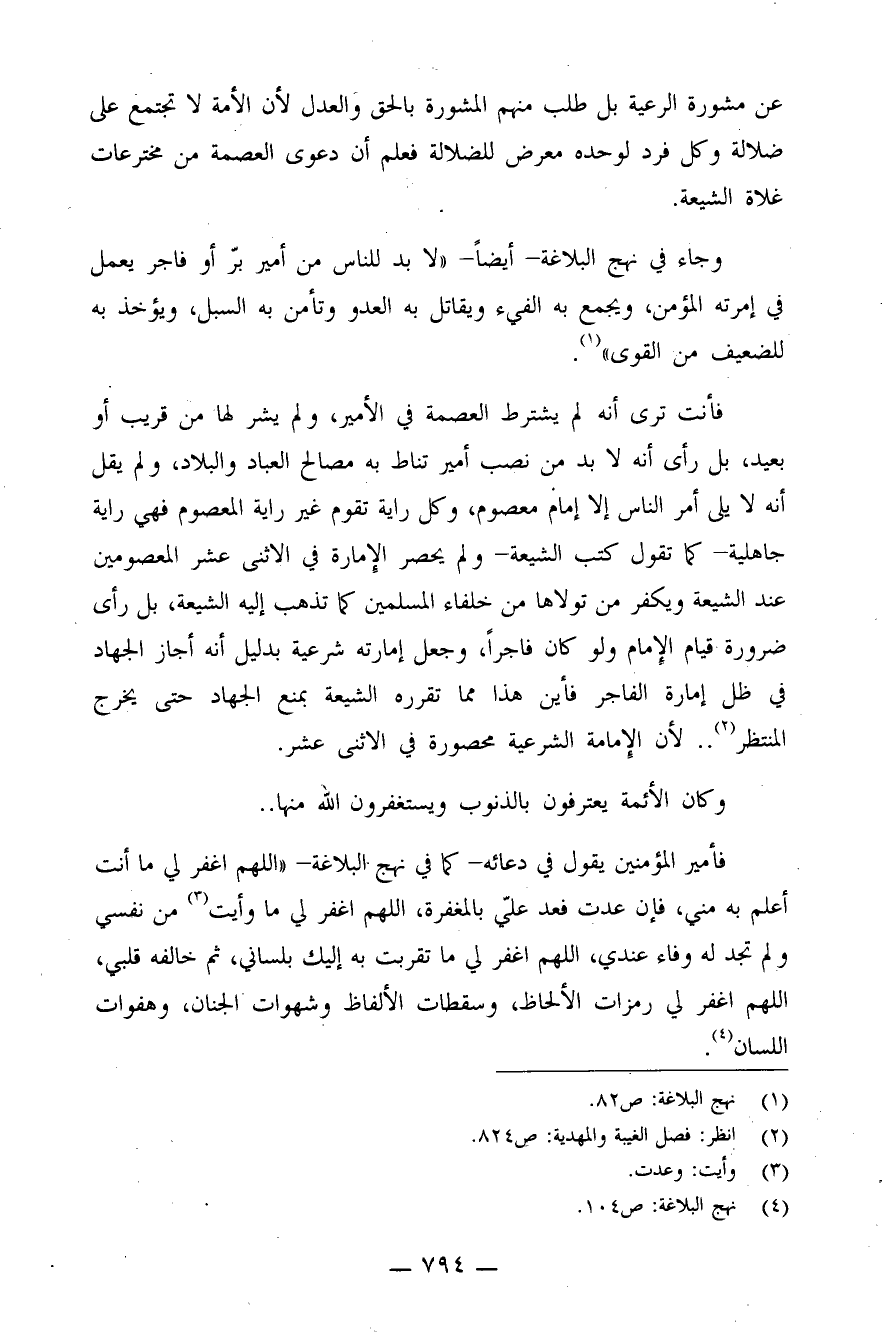 عن مشورة الرعية بل طلب منهم المشورة بالحق والعدل لأن الأمة لا تجتمع على
ضلالة وكل فرد لوحده معرض للضلالة فعلم أن دعوى العصمة من مخترعات
غلاة الشيعة.
وجاء في نهج البلاغة– أيضاً– «لا بد للناس من أمير برّ أو فاجر يعمل
في إمرته المؤمن، ويجمع به الفيء ويقاتل به العدو وتأمن به السبل، ويؤخذ به
للضعيف من القوى»(١).
فأنت ترى أنه لم يشترط العصمة في الأمير، ولم يشر لها من قريب أو
بعيد، بل رأى أنه لا بد من نصب أمير تناط به مصالح العباد والبلاد، ولم يقل
أنه لا يلى أمر الناس إلا إمام معصوم، وكل راية تقوم غير راية المعصوم فهي راية
جاهلية– كما تقول كتب الشيعة– ولم يحصر الإمارة في الاثنى عشر المعصومين
عند الشيعة ويكفر من تولاها من خلفاء المسلمين كما تذهب إليه الشيعة، بل رأى
ضرورة قيام الإمام ولو كان فاجراً، وجعل إمارته شرعية بدليل أنه أجاز الجهاد
في ظل إمارة الفاجر فأين هذا مما تقرره الشيعة بمنع الجهاد حتى يخرج
المنتظر(٢).. لأن الإمامة الشرعية محصورة في الاثنى عشر.
وكان الأئمة يعترفون بالذنوب ويستغفرون الله منها..
فأمير المؤمنين يقول في دعائه– كما في نهج البلاغة– «اللهم اغفر لي ما أنت
أعلم به مني، فإن عدت فعد عليّ بالمغفرة، اللهم اغفر لي ما وأيت(٣) من نفسي
ولم تجد له وفاء عندي، اللهم اغفر لي ما تقربت به إليك بلساني، ثم خالفه قلبي،
اللهم اغفر لي رمزات الألحاظ، وسقطات الألفاظ وشهوات الجنان، وهفوات
اللسان(٤).
(١) نهج البلاغة: ص٨٢.
(٢) انظر: فصل الغيبة والمهدية: ص٨٢٤.
(٣) وأيت: وعدت.
(٤) نهج البلاغة: ص١٠٤.
— ٧٩٤ —